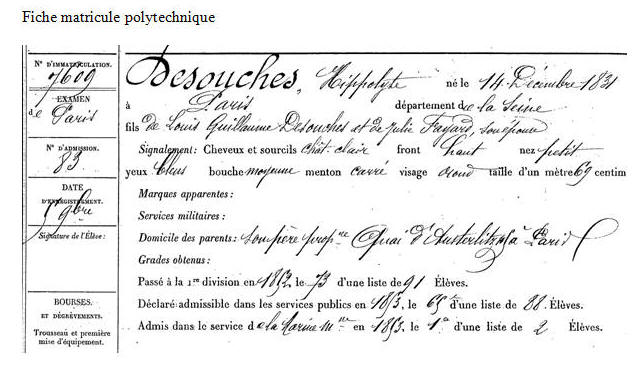 Fiche matricule polytechnique
N° D'IMMATRICULATION.
7609
EXAMEN
de Paris
N° D'ADMISSION.
83
DATE
D'ENREGISTREMENT.
5 9bre
Signature de l'Élève :
BOURSES.
ET DÉGRÈVEMENTS.
Trousseau et première
mise d'équipement.
Desouches, Hippolyte né le 14 Décembre 1831
à Paris département de la Seine
fils de Louis Guillaume Desouches et de Julie Fayard, son épouse
Signalement : Cheveux et sourcils chât. clair front haut nez petit
yeux bleus bouche moyenne menton carré visage rond taille d'un mètre 69 centim
Marques apparentes :
Services militaires :
Domicile des parents : son père prop.re Quai d'Austerlitz à Paris
Grades obtenus :
Passé à la 1re division en 1852 le 73 d'une liste de 91 Élèves.
Déclaré admissible dans les services publics en 1853. le 65e d'une liste de 88 Élèves.
Admis dans le service de la Marine en 1853. le 1er d'une liste de 2 Élèves.